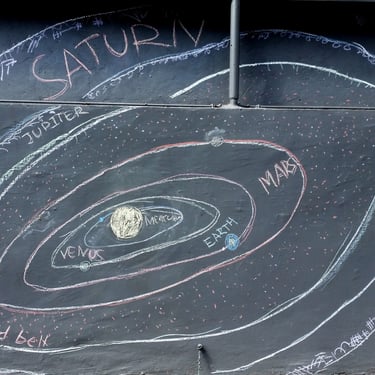 SATURN
JUPITER
MARS
MERCURY
EARTH
VENUS
d belt